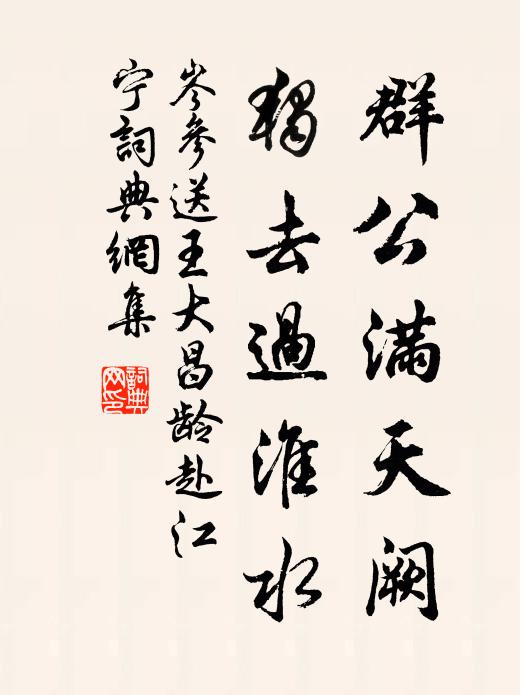 群公满天阙
獨去過淮水
岑參送王大昌龄赴江
宁詞典網集
詞典
网印